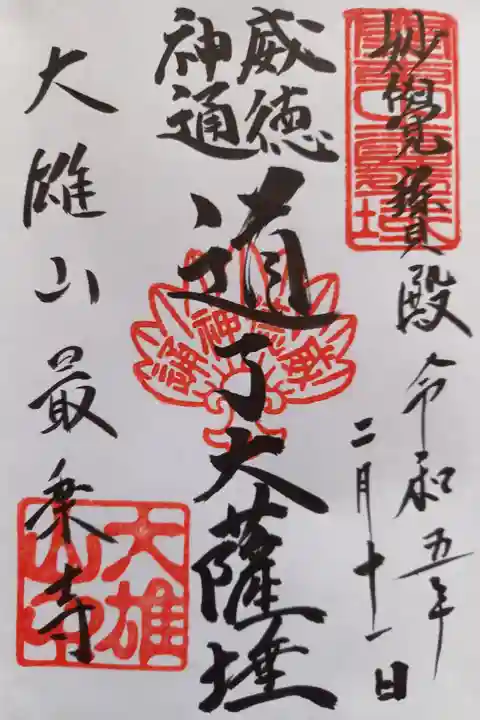 妙覺寶殿
令和五年
二月十一日
威徳
神通
道了大薩埵
大雄山最乗寺
大雄
山印